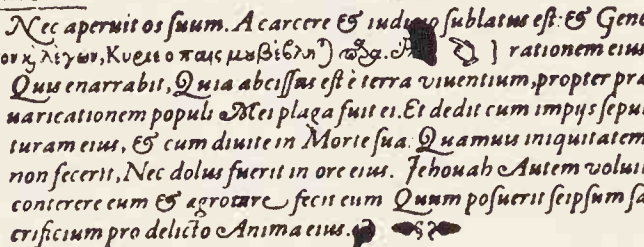 Nec aperuit os suum. A carcere & iudicio sublatus est: & Gene
ον κ̀ λέγων, Κυριε ο παις μȣ βέβλη rationem eius
Quis enarrabit, Quia abcissus est è terra viuentium, propter præ
uaricationem populi Mei plaga fuit ei. Et dedit cum impijs sepul
turam eius, & cum diuite in Morte sua. Quamuis iniquitatem
non fecerit, Nec dolus fuerit in ore eius. Jehouah Autem voluit
conterere eum & agrotare fecit eum Quum posuerit seipsum sa
crificium pro delicto Anima eius.